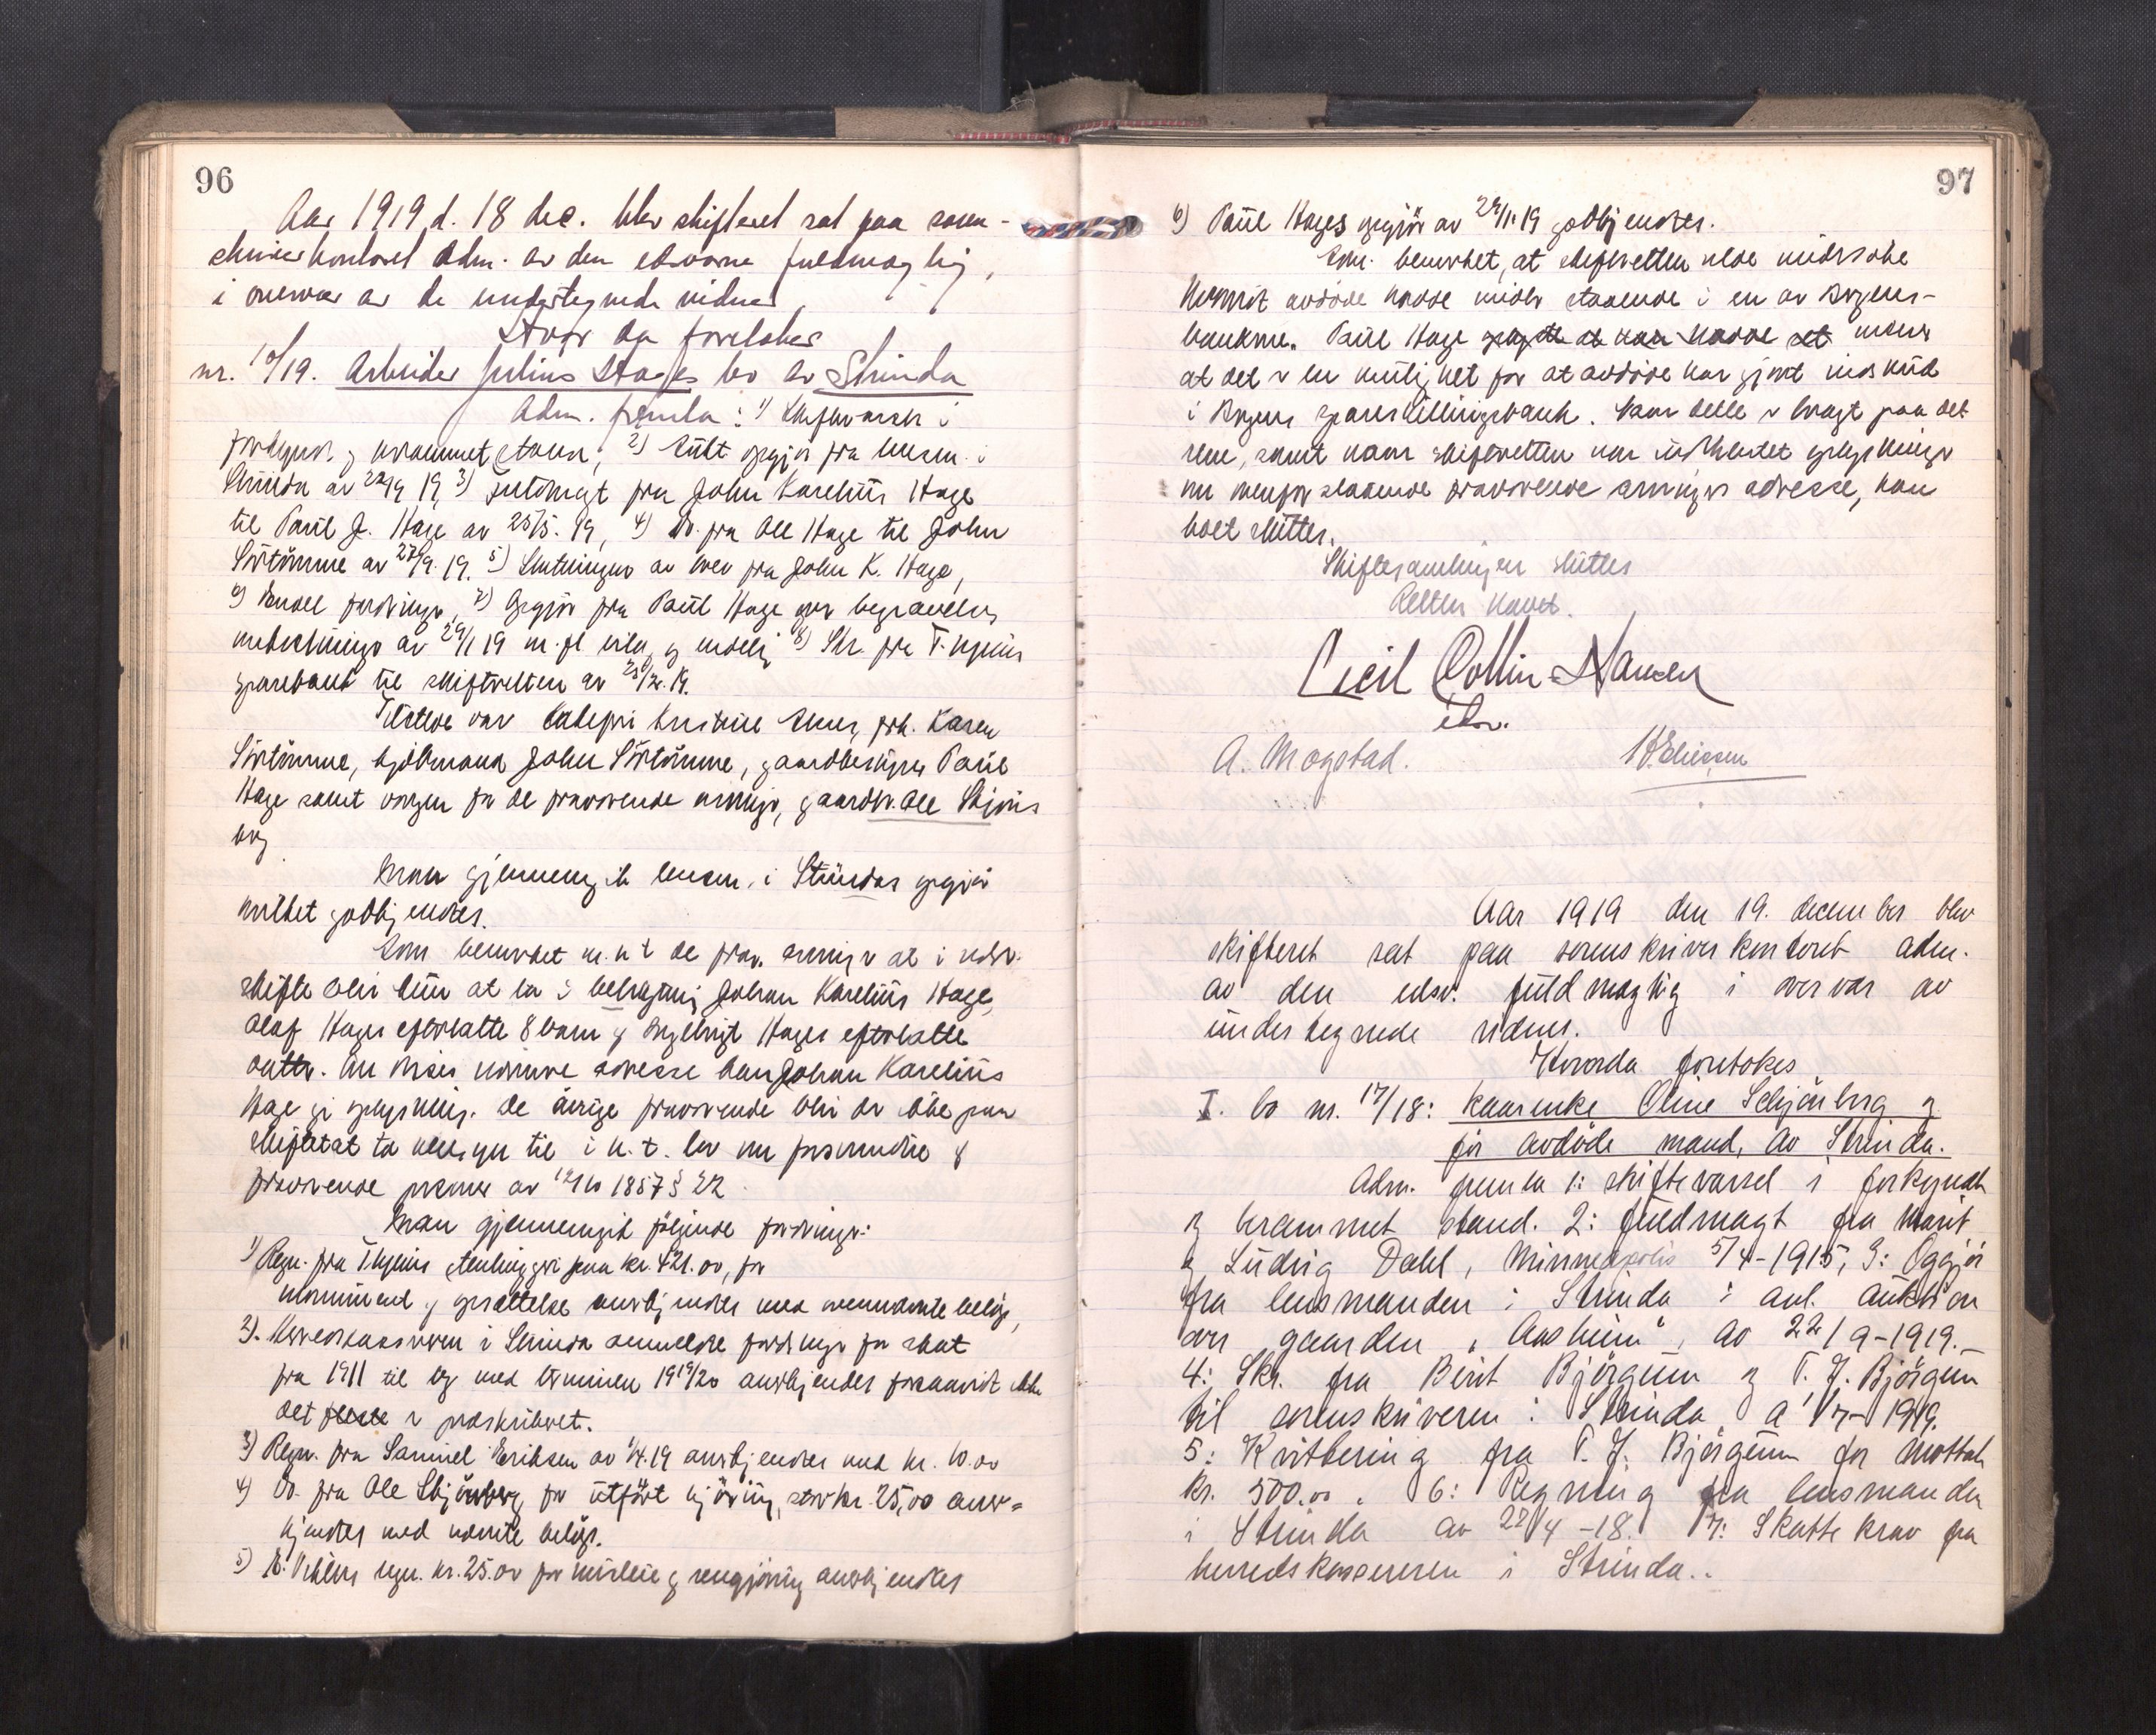 96
Aar 1919 d. 18 dec. blev skifteret sat paa soren-
skriverkontoret adm. av den edsvorne fuldmægtig,
i overvær av de undertegnede vidner
Hvor da foretokes
nr. 10/19. Arbeider Julius Hages bo av Strinda
Adm. fremla: 1) Skiftevarsel i
forkyndt og berammet stand, 2) Aukt. opgjør fra lensm. i
Strinda av 22/9 19, 3) Fuldmagt fra John Karelius Hage
til Paul J. Hage av 25/5. 19, 4) Do. fra Ole Hage til John
Sörtömme av 27/9. 19. 5) Slutningen av brev fra John K. Hage,
6) Anmeldt fordringer, 7) Opgjör fra Paul Hage over begravelses
omkostninger av 29/11 19 m. fl. bilag og endelig 8) Skr. fra
sparebank til skifteretten av
Tilstede var Kristine frk. Karen
Sörtömme, kjöbmand John Sörtömme, gaardbruker Paul
Hage samt vergen for de fraværende arvinger, gaardbr. Ole Skjöns
berg
Man gjennemgik lensm. i Strindas opgjör
hvilket godkjendtes.
Som bemerket m. h. t. de frav. arvinger at i
skifte blir kun at ta i betragtning Johan Karelius Hage,
Olaf Hages efterlatte 8 barn og Ingebrigt Hages efterlatte
datter. Om disses nærmere adresse kan Johan Karelius
Hage gi oplysning. De övrige fraværende blir der ikke paa
skiftet at ta hensyn til i h. t. lov om forsvundne &
fraværende personer av 12/10 1857 § 22
Man gjennemgik fölgende fordringer:
1) Regn. fra stenhuggeri paa kr. 421.00, for
monument og opsættelse anerkjendtes med ovennævnte belöp,
2). Herredskassereren i Strinda anmeldte fordringer for skat
fra 1911 til og med terminen 1919/20 anerkjendes forsaavidt ikke
det er præskriberet.
3) Regn. fra Samuel Eriksen av 1/4. 19 anerkjendtes med kr. 10.00
4) Do. fra Ole Skjönberg for utfört kjöring, stor kr. 25,00 aner-
kjendtes med nævnte belöp.
5) regn. kr. 25.00 for husleie og rengjöring anerkjendtes
97
6) Paul Hages opgjör av 29/11 19 godkjendtes.
Som bemerket, at skifteretten vilde undersöke
hvorvidt avdöde hadde midler staaende i en av byens
bankene. Paul Hage mener
at det er en mulighet for at avdöde har gjort indskud
i Byens spareskillingsbank. Naar dette er bragt paa det
rene, samt naar skifteretten har indhentet oplysninger
om ovenfor staaende fraværende arvinger adresse, kan
boet sluttes.
Skiftesamlingen sluttes
Retten hævet.
Cecil Collin-Hansen
edsv.
A. Mogstad.
Aar 1919 den 19. december blev
skifteret sat paa sorenskriverkontoret adm.
av den edsv. fuldmægtig i overvær av
undertegnede vidner.
Hvorda foretokes
I. bo nr. 17/18: kaarenke Oline Schjönberg og
för avdöde mand, av Strinda.
Adm. fremla 1: skiftevarsel i forkyndt
og berammet stand. 2: fuldmagt fra Marit
og Ludvig Dahl, Minneapolis 5/4-1915, 3: Opgjör
fra lensmanden i Strinda i anl. auktion
over gaarden „Aasheim“, av 22/9-1919.
4: Skr. fra Berit Björgum og T. J. Björgum
til sorenskriveren i Strinda a 1/7-1919.
5: Kvittering fra T. J. Björgum for mottat
kr. 500.00. 6: Regning fra lensmanden
i Strinda av 22/4-18. 7: Skattekrav fra
herredskassereren i Strinda..